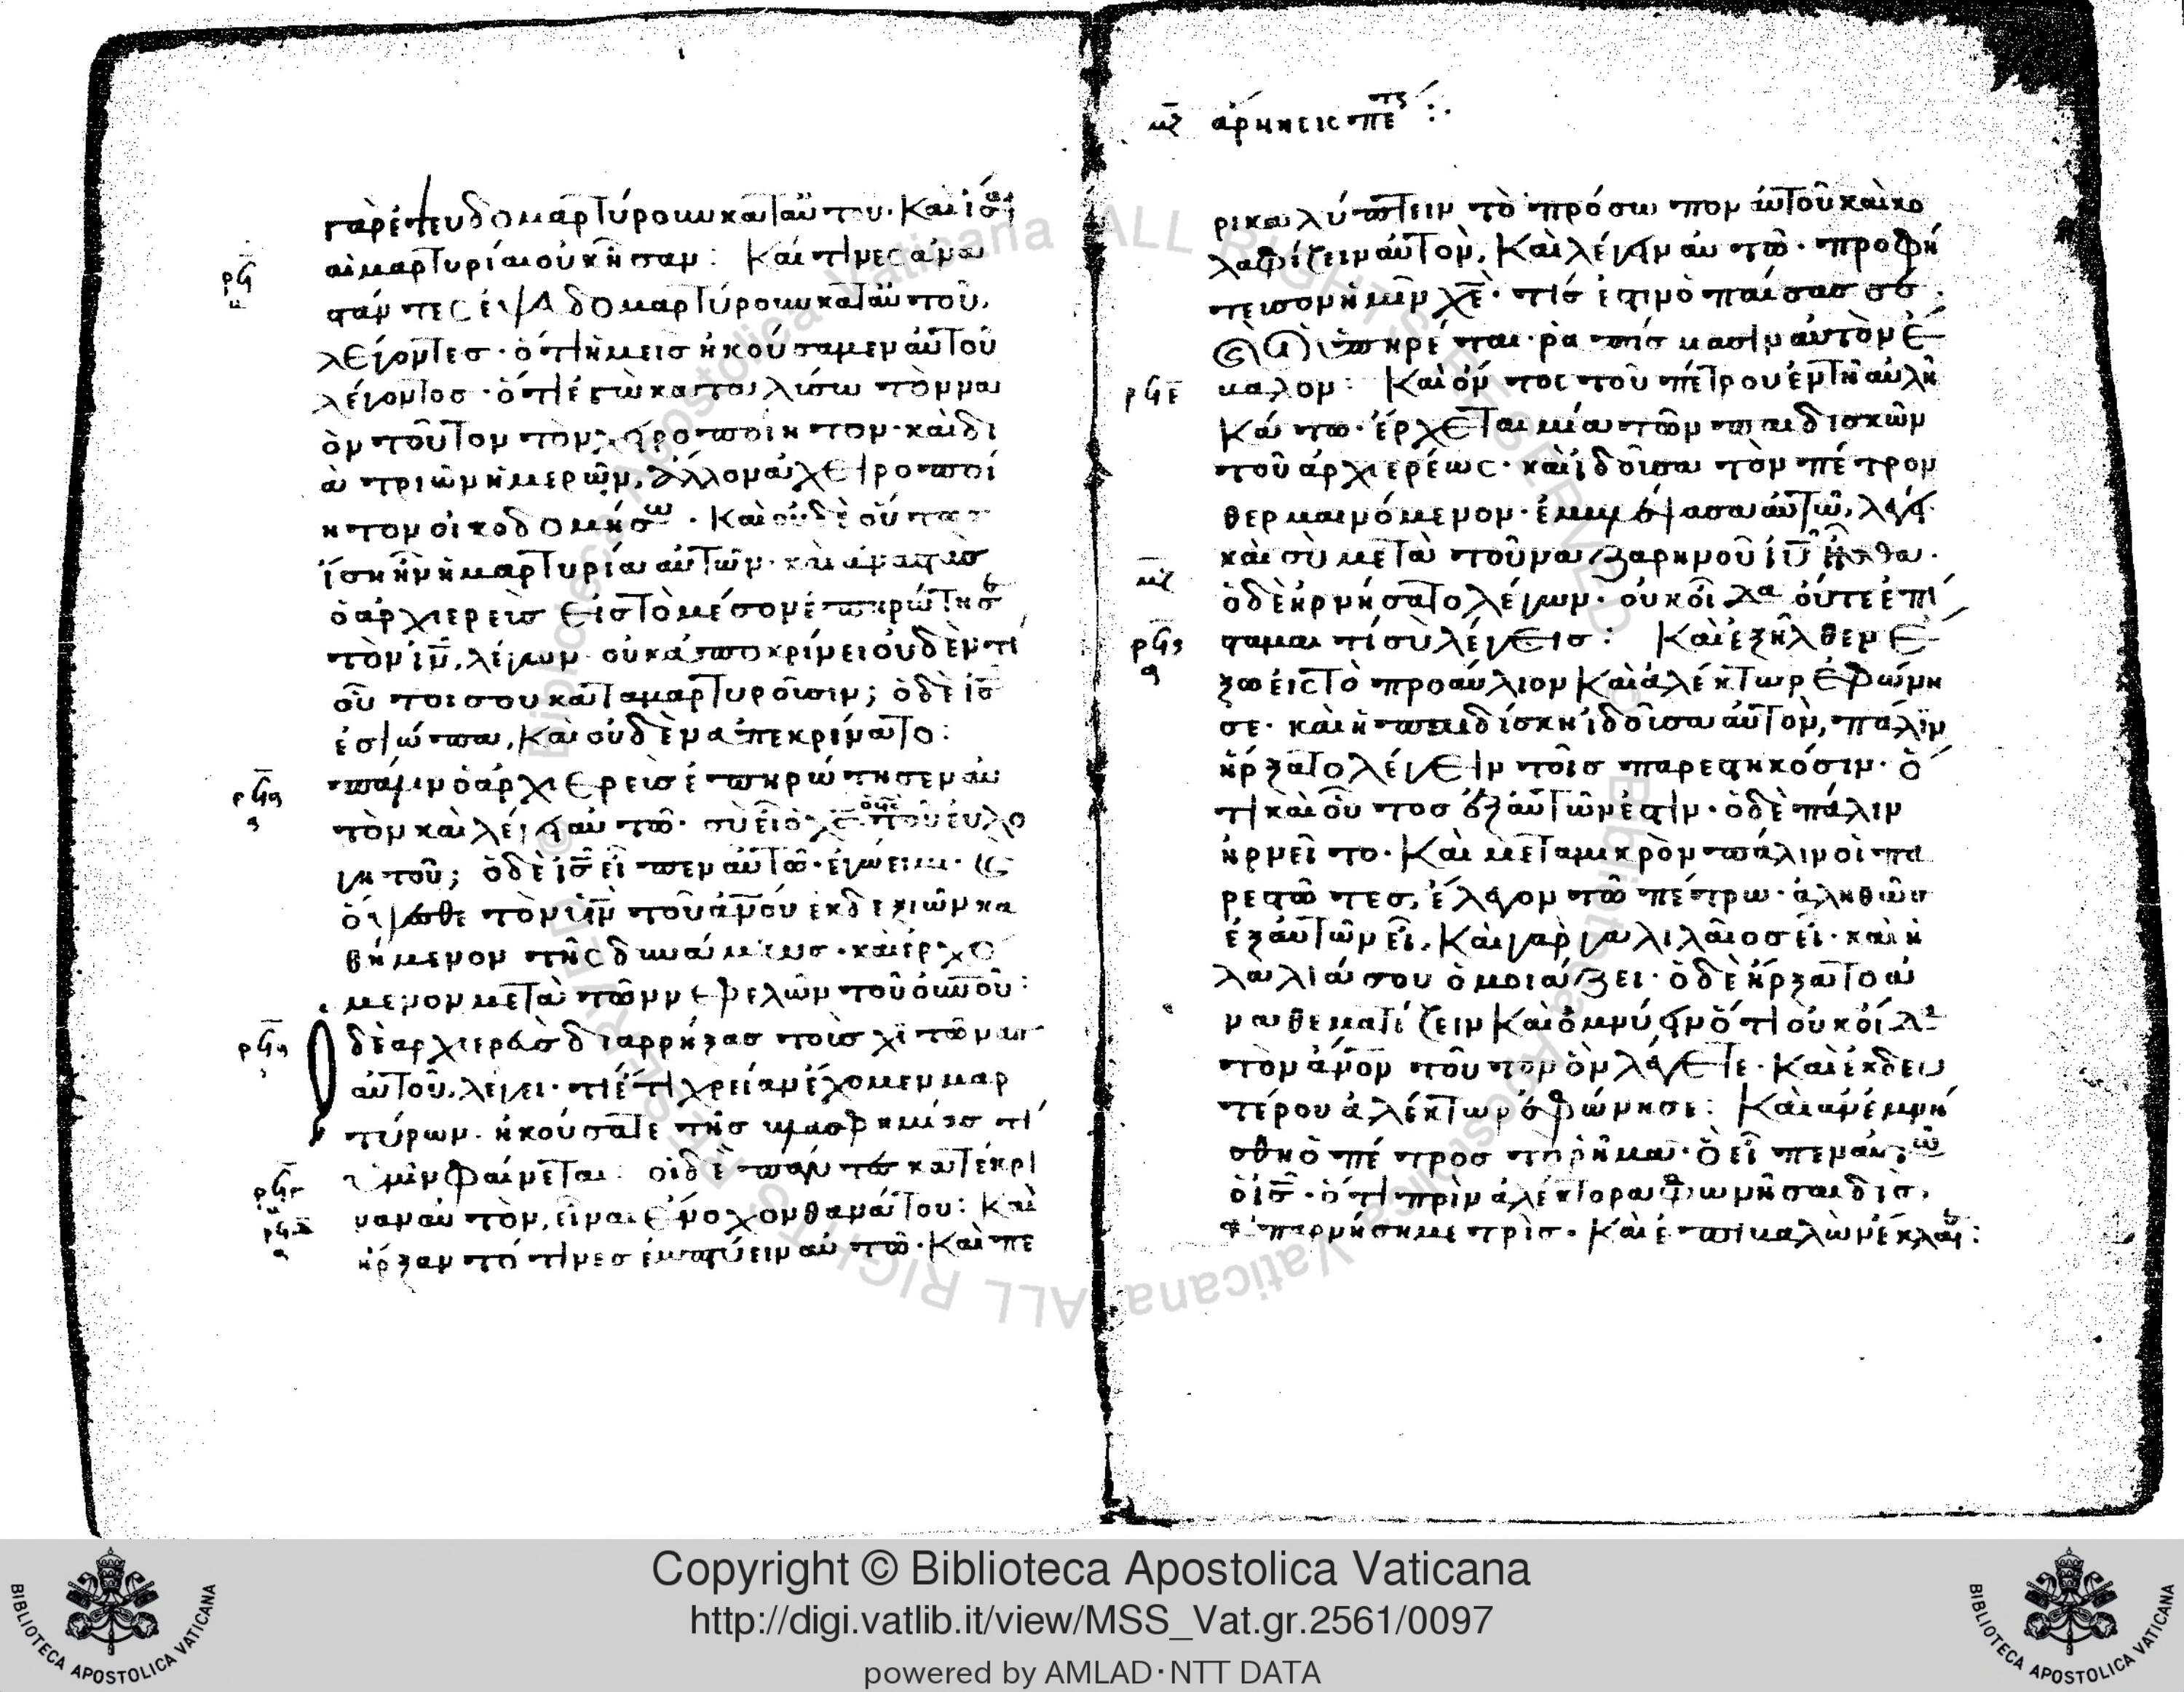 γὰρ ἐψευδομαρτύρουν κατ αὐτου. Καὶ ἴσαι
αἱ μαρτυρίαι οὐκ ἦσαν: Καί τινες ἀνα
ρϟ
η
στάντες ἐψευδομαρτύρουν κατ αὐτοῦ,
λέγοντες· ὅτι ἡμεῖς ἠκούσαμεν αὐτοῦ
λέγοντος· ὅτι ἐγὼ καταλύσω τὸν να
ὸν τοῦτον τὸν χειροποίητον· καὶ δι
ὰ τριῶν ἡμερῶν, ἄλλον ἀχειροποί
ητον οἰκοδομήσω. Καὶ οὐδὲ οὕτως
ἴση ἦν ἡ μαρτυρία αὐτῶν. καὶ ἀναστὰς
ὁ ἀρχιερεὺς εἰς τὸ μέσον ἐπηρώτησε
τὸν ιν, λέγων. οὐκ ἀποκρίνει οὐδέν τί
οὗτοι σου καταμαρτυροῦσιν; ὁ δὲ ις
ἐσιώπα, Καὶ οὐδὲν ἀπεκρίνατο:
ρϟα
πάλιν ὁ ἀρχιερεὺς ἐπηρώτησεν αὐ
τὸν καὶ λέγει αὐτῶ· σὺ εἶ ὁ χς ὁ υς τοῦ εὐλο
γητοῦ; ὁ δὲ ις εἶπεν αὐτῶ· ἐγώ εἰμι. Καὶ
ὄψεσθε τὸν υν τοῦ ανου ἐκ δεξιῶν κα
θήμενον τῆς δυνάμεως. καὶ ἐρχό
μενον μετὰ τῶν νεφελῶν τοῦ ουνου:
Ο
δὲ ἀρχιερεὺς διαρρήξας τοὺς χιτῶνας
αὐτοῦ, λέγει· τί ἔτι χρείαν ἔχομεν μαρ
τύρων. ἠκούσατε τῆς βλασφημίας τί
ὑμῖν φαίνεται: οἱ δὲ πάντες κατέκρι
ναν αὐτὸν, εἶναι ἔνοχον θανάτου: Καὶ
ἤρξαντό τινες ἐμπτύειν αὐτῶ. Καὶ πε
μζ ἀρνησις πετρ:
ρικαλύπτειν τὸ πρόσωπον αὐτοῦ καὶ κο
λαφίζειν αὐτὸν, Καὶ λέγειν αὐτῶ· προφή
τευσον ἡμῖν χε· τίς ἐστιν ὁ παίσας σε.
Καὶ οἱ ὑπηρέται· ραπίσμασιν αὐτὸν ἔ
ρϟε
βαλον: Καὶ ὄντος τοῦ πέτρου ἐν τῆ αὐλῆ
Κάτω· ἔρχεται μία τῶν παιδισκῶν
τοῦ ἀρχιερέως· καὶ ἰδοῦσα τὸν πέτρον
θερμαινόμενον· ἐμβλέψασα αὐτῶ, λέγει·
καὶ σὺ μετὰ τοῦ ναζαρηνοῦ ιυ ἦσθα.
μζ
ὁ δὲ ἠρνήσατο λέγων· οὐκ οἶδα οὔτε ἐπί
ρϟς
α
σταμαι τί σὺ λέγεις: Καὶ ἐξῆλθεν ἔ
ξω εἰς τὸ προαύλιον Καὶ ἀλέκτωρ ἐφώνη
σε. καὶ ἡ παιδίσκη ἰδοῦσα αὐτὸν, πάλιν
ἤρξατο λέγειν τοῖς παρεστηκόσιν· ὅ
τι καὶ οὗτος ἐξ αὐτῶν ἐστιν. ὁ δὲ πάλιν
ἠρνεῖτο. Καὶ μετὰ μικρὸν πάλιν οἱ πα
ρεστῶτες, ἔλεγον τῶ πέτρω· ἀληθῶς
ἐξ αὐτῶν εἶ, Καὶ γὰρ γαλιλαῖος εἶ· καὶ ἡ
λαλιά σου ὁμοιάζει· ὁ δὲ ἤρξατο ἀ
ναθεματίζειν Καὶ ὀμνύειν ὅτι οὐκ οἶδα
τὸν ανον τοῦτον ὃν λέγετε. Καὶ ἐκ δευ
τέρου ἀλέκτωρ ἐφώνησε: Καὶ ἀνεμνή
σθη ὁ πέτρος τὸ ῥῆμα· ὃ εἶπεν αὐτῶ
ὁ ις· ὅτι πρὶν ἀλέκτορα φωνῆσαι δὶς,
ἀπαρνήση με τρὶς. Καὶ ἐπιβαλὼν ἔκλαιε:
Copyright © Biblioteca Apostolica Vaticana
http://digi.vatlib.it/view/MSS_Vat.gr.2561/0097
powered by AMLAD·NTT DATA
BIBLIOTECA APOSTOLICA VATICANA
BIBLIOTECA APOSTOLICA VATICANA